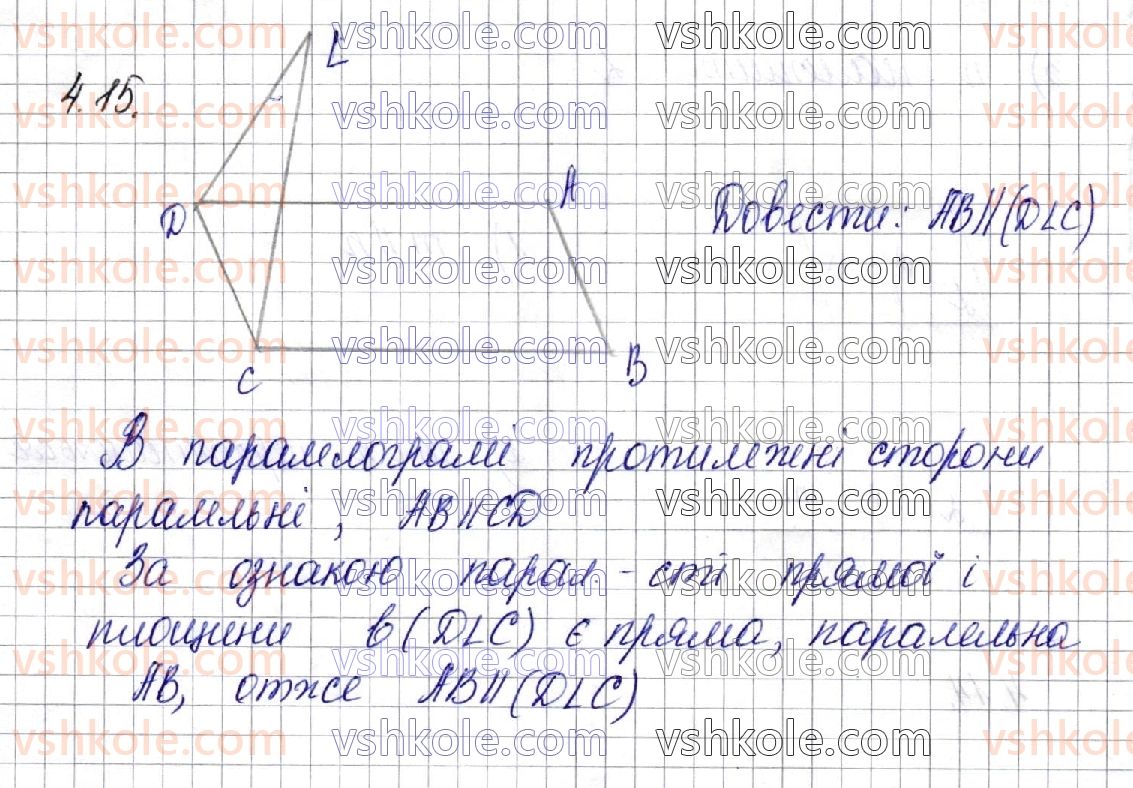 4.15.
L
D
A
C
B
Довести: AB||(DLC)
В паралелограмі протилежні сторони
паралельні, AB||CD
За ознакою парал-сті прямої і
площини в (DLC) є пряма, паралельна
AB, отже AB||(DLC)
vshkole.com